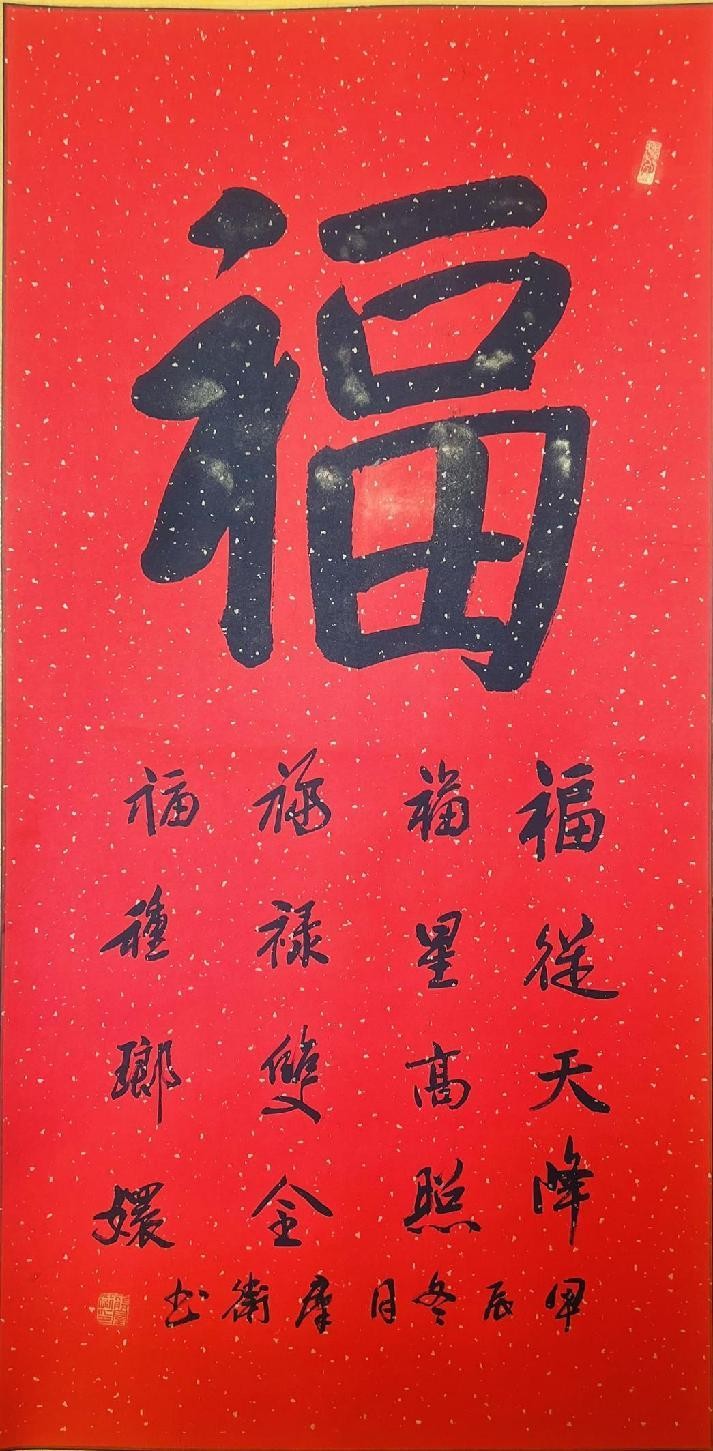 福
福從天降
福星高照
福禄雙全
福種瑯嬛
甲辰冬月 衛书